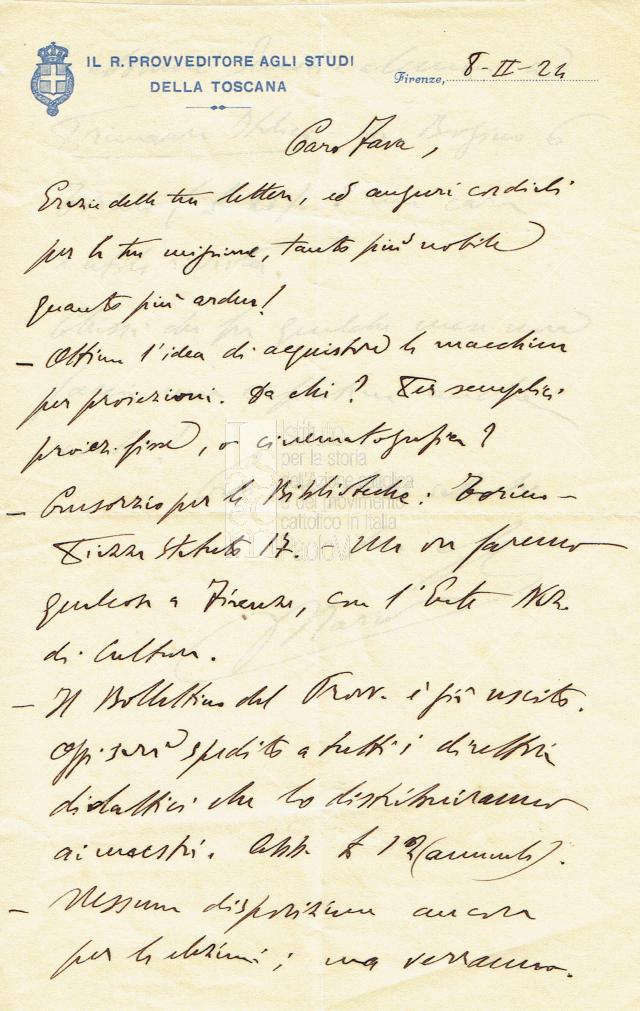 IL R. PROVVEDITORE AGLI STUDI
DELLA TOSCANA
Firenze, 8-II-24
Caro Fava,
Grazie della tua lettera, ed auguri cordiali
per la tua missione, tanto più nobile
quanto più ardua!
- Ottima l'idea di acquistare la macchina
per proiezioni. Da chi? Per semplici
proiez. fisse, o cinematografica?
- Consorzio per le Biblioteche: Torino -
Piazza Statuto 17. - Ma ora faremo
qualcosa a Firenze, con l'Ente Naz.
di Cultura.
- Il Bollettino del Provv. è già uscito.
Oggi sarà spedito a tutti i direttori
didattici che lo distribuiranno
ai maestri. Abb. £ 12 (annuale).
- Nessuna disposizione ancora
per le elezioni; ma verranno.
Istituto
per la storia
dell'Azione cattolica
e del movimento
cattolico in Italia
Paolo VI